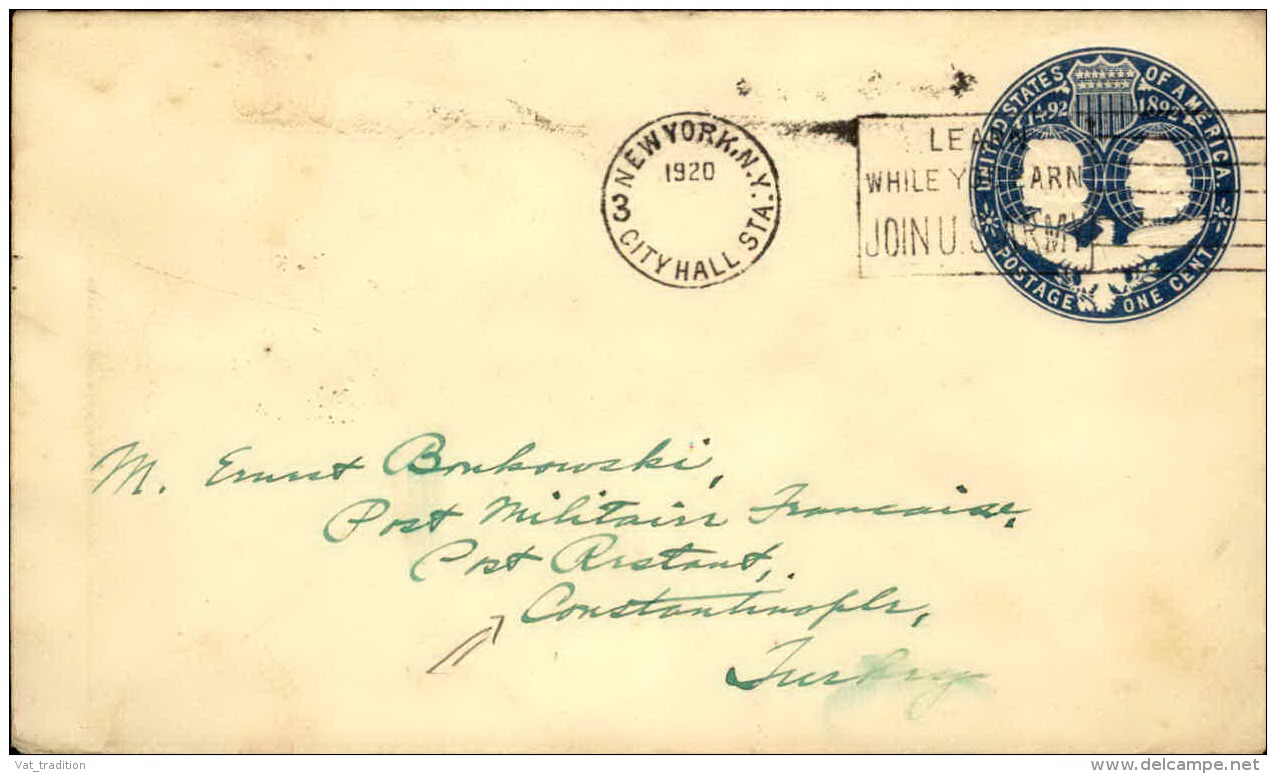 UNITED STATES OF AMERICA.
1492 1892
POSTAGE ONE CENT.
NEW YORK, N.Y.
1920
3
CITY HALL STA.
LEARN
WHILE YOU EARN
JOIN U.S. ARMY
M. Ernest Bonkowski,
Post Militaire Francaise,
Post Restant,
Constantinople,
Turkey
Vat_tradition
delcampe.net